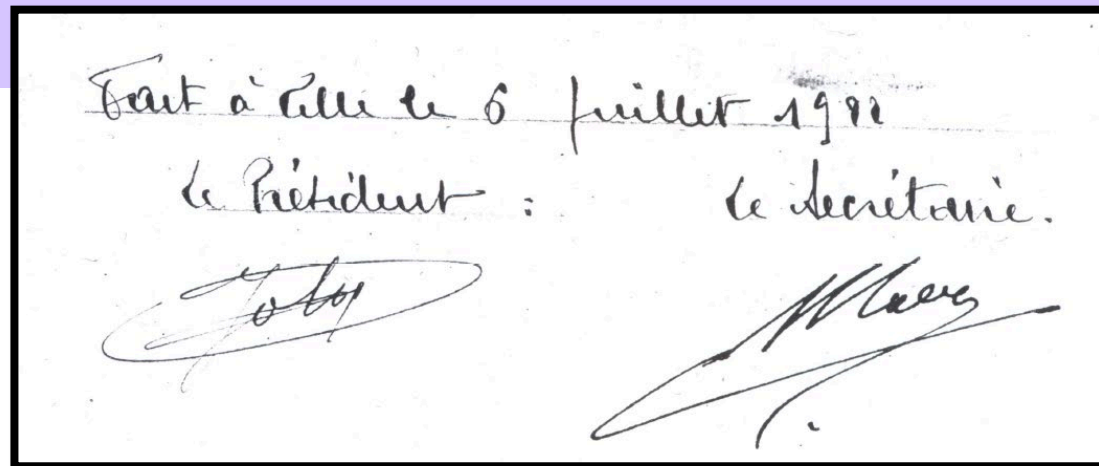 Fait à Lille le 6 Juillet 1988
Le Président : Le Secrétaire.
Joly